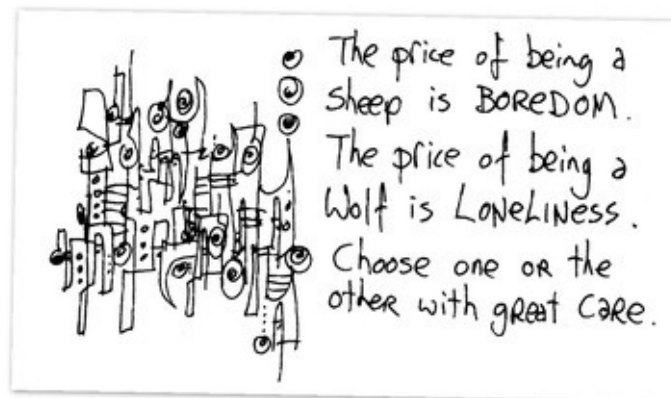 The price of being a
sheep is BOREDOM.
The price of being a
Wolf is LONELINESS.
Choose one OR the
other with great Care.